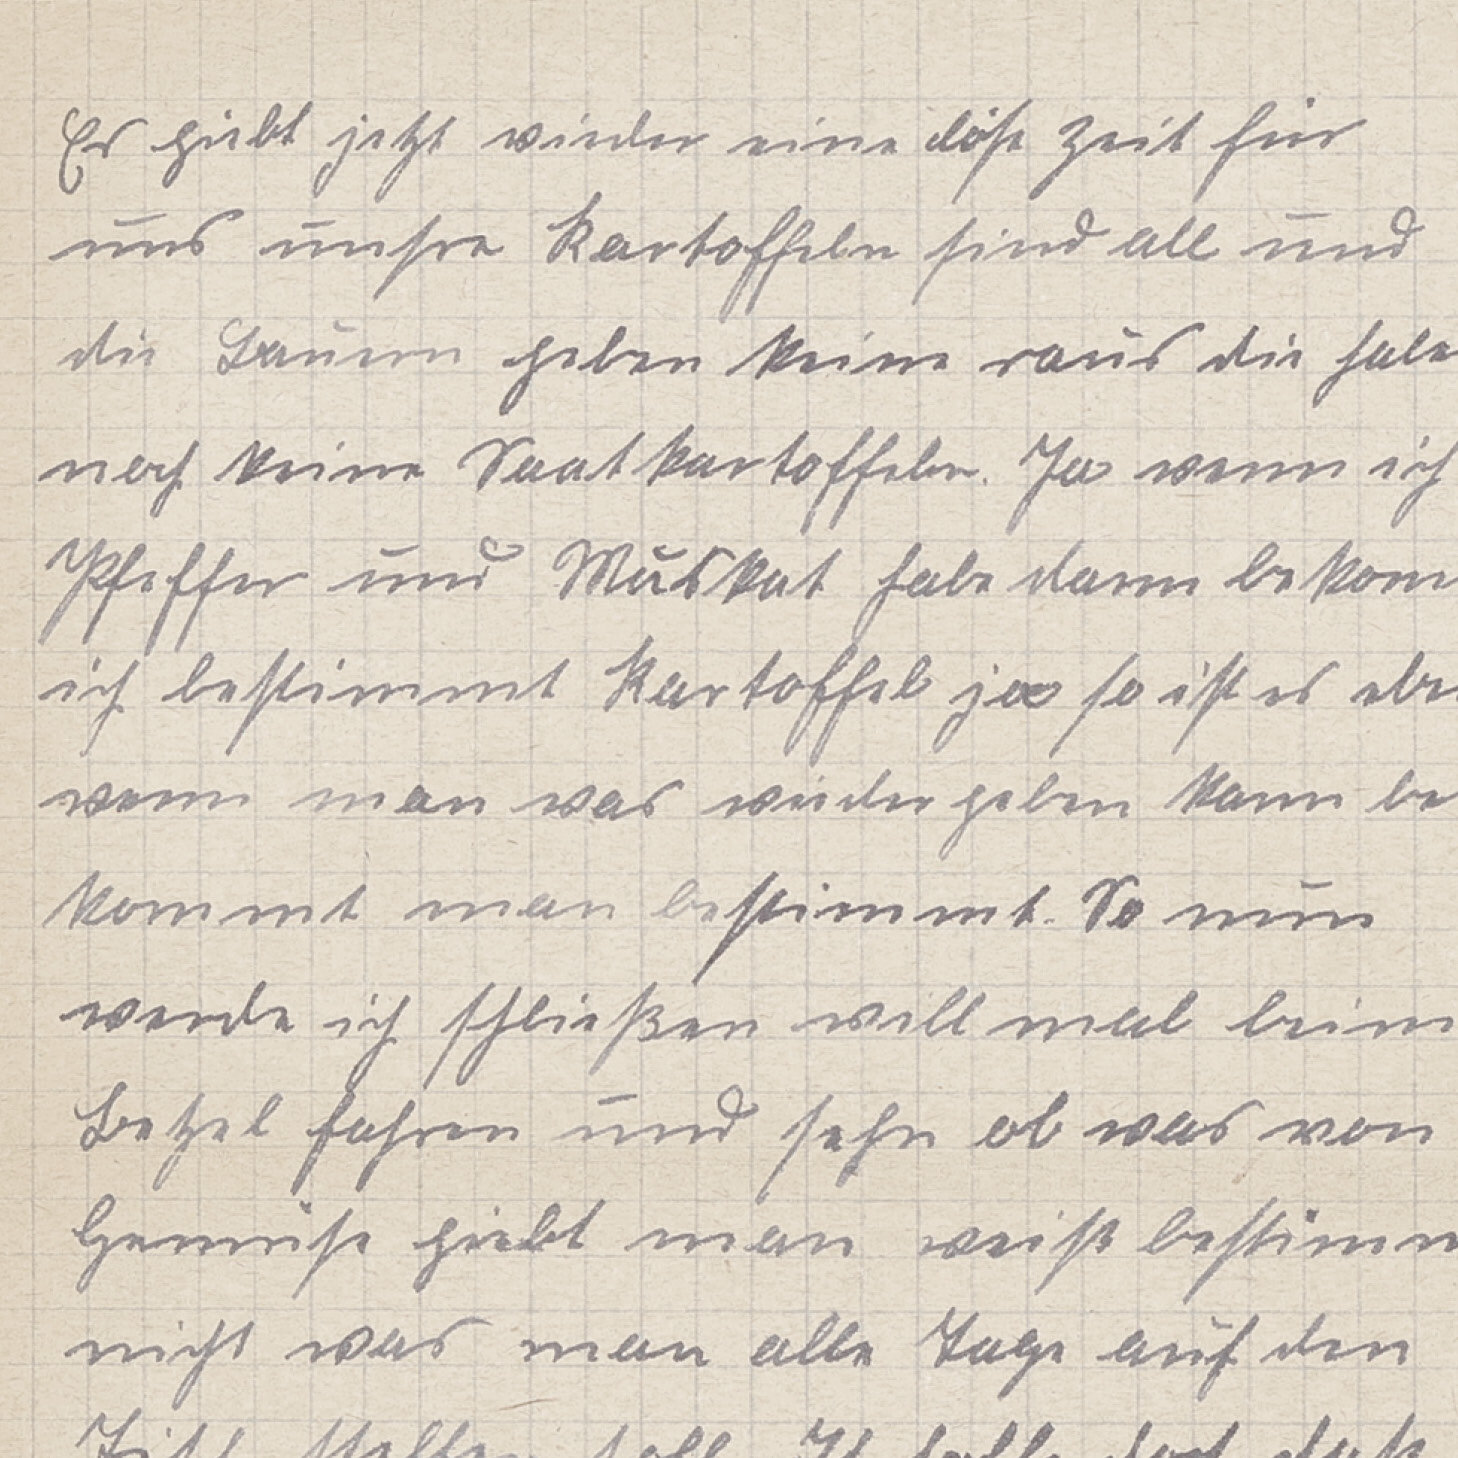 Es giebt jetzt wieder eine böse Zeit für
uns unsre Kartoffeln sind all und
die Bauern geben keine raus die habe
noch keine Saatkartoffeln. Ja wenn ich
Pfeffer und Muskat habe dann bekom
ich bestimmt Kartoffel ja so ist es ebe
wenn man was wiedergeben kann be
kommt man bestimmt. So nun
werde ich schließen will mal beim
Betzel fahren und sehn ob was von
Gemüse giebt man weiß bestimm
nicht was man alle Tage auf den
Tisch stellen soll. Ich